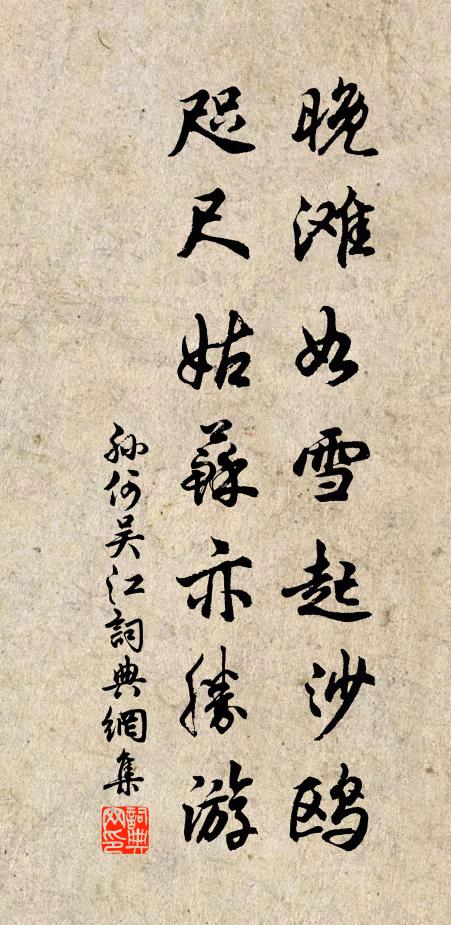 晚滩如雪起沙鸥
咫尺姑蘇亦勝游
孙何吴江詞典網集
詞典网印